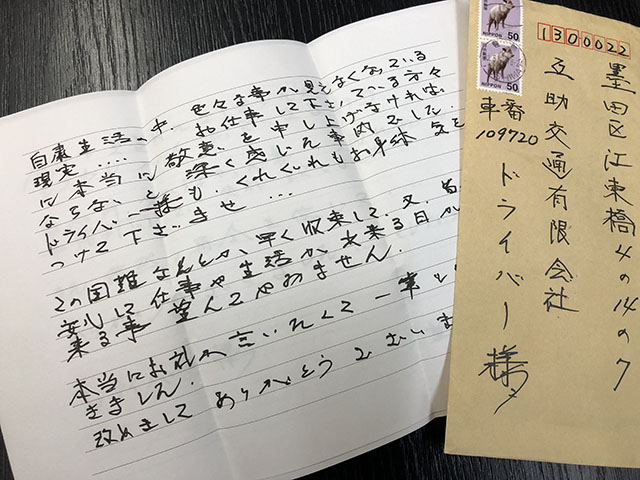 自粛生活の中、色々な事が見えなくなっている
現実.... お仕事して下さっている方々
に本当に敬意を申し上げなければ、
ならないと深く感じた車内でした。
ドライバー様も、くれぐれもお身体気を
つけて下さいませ...
この困難なんとか早く収束して、又、皆
安心して仕事や生活が出来る日が
来る事望んでやみません.
本当にお礼が言いたくて一筆
きました.
改めましてありがとうございま
NIPPON 50
NIPPON 50
1300022
墨田区江東橋4の14の7
互助交通有限会社
車番
109720
ドライバー様